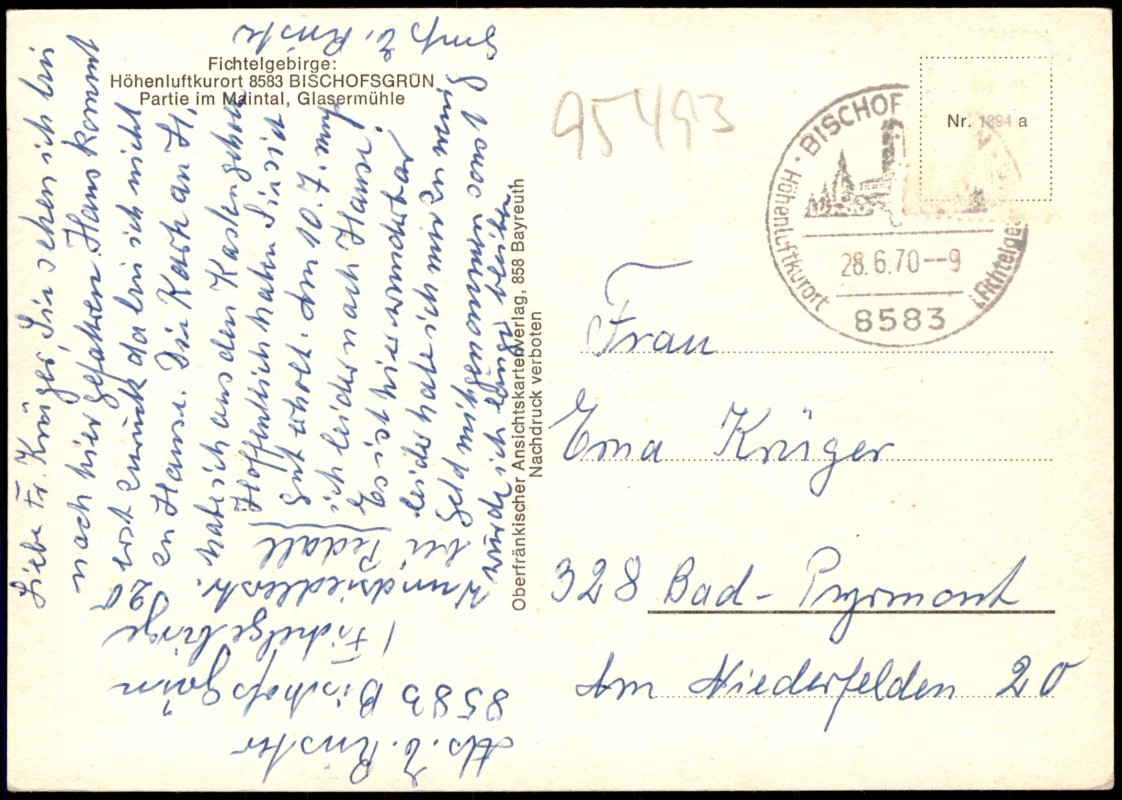 Fichtelgebirge:
Höhenluftkurort 8583 BISCHOFSGRÜN
Partie im Maintal, Glasermühle
Liebe Fr. Krüger, Sie sehen ich bin
nach hier gefahren. Hans kommt
erst zurück da bin ich nicht
zu Hause. Die Karte an H.
habe ich aus den Kasten geholt
Hoffentlich haben Sie sich
gut erholt. Am 10.7. muß
ich leider nach Hause.
Es ist hier wunderbar
leider habe ich mir zu wenig
Geld mitgenommen sonst
würde ich länger bleiben
Gruß E.
Abs. E.
8583 Bischofsgrün
/ Fichtelgebirge
Wunsiedlerstr. 120
bei
Oberfränkischer Ansichtskartenverlag, 858 Bayreuth
Nachdruck verboten
95493
BISCHOF
Höhenluftkurort
Fichtelge
28.6.70--9
8583
Nr. 1894 a
Frau
Erna Krüger
328 Bad-Pyrmont
Am Niederfelden 20